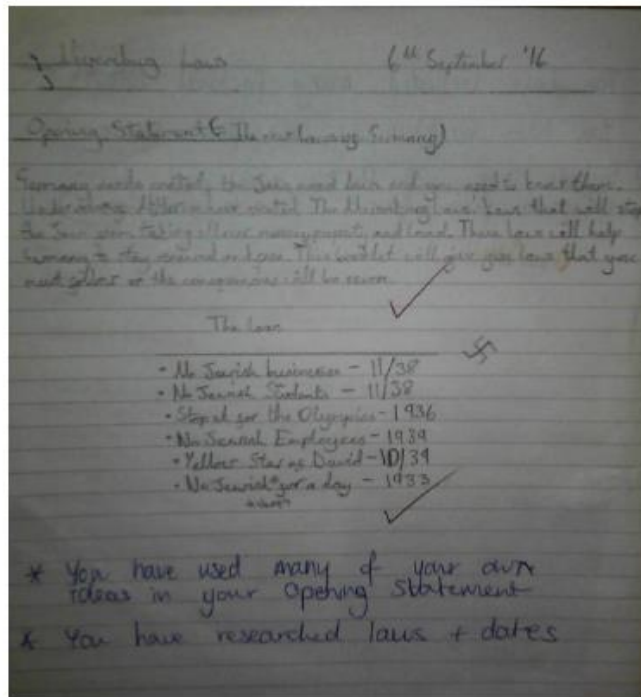 Nuremburg Laws 6th September '16
Opening Statement (The new laws of Germany)
Germany needs control, the Jews need laws and you need to know them.
Under Hitler have created The Nuremburg Laws' laws that will stop
the Jews from taking all our money, and land. These laws will help
Germany to stay This booklet will give you laws that you
must follow or the consequences will be severe.
The Laws
• No Jewish businesses - 11/38
• No Jewish Students - 11/38
• Stopped for the Olympics - 1936
• No Jewish Employees - 1939
• Yellow Star of David - 10/39
• No Jewish* for a day - 1933
* You have used many of your own
ideas in your Opening Statement
* You have researched laws + dates